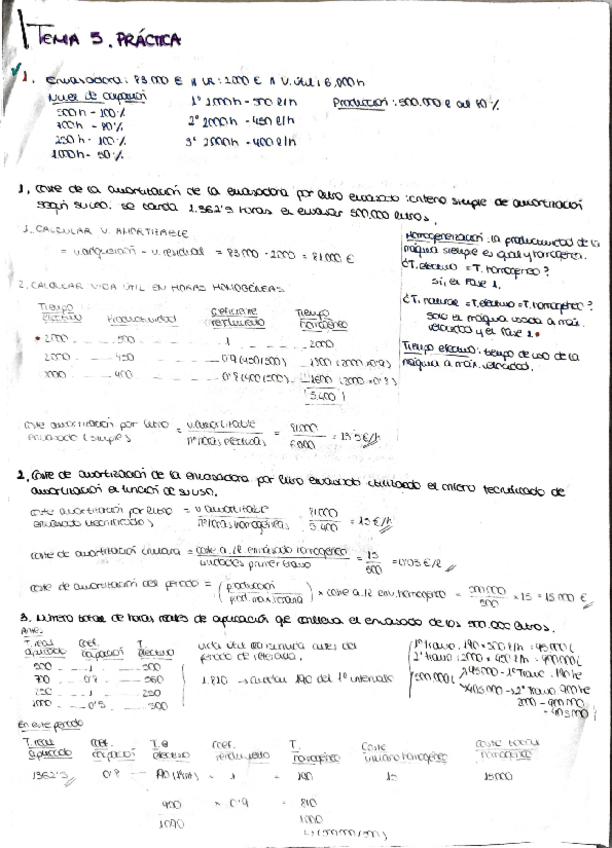 TEMA 5. PRÁCTICA
1. Envasadora: 83.000 € ∧ VR: 2000 € ∧ V. Útil: 6.000h
Nivel de ocupación
1º 2000h - 500 l/h
Producción: 500.000 l al 80%
500h - 100%
2º 2000h - 450 l/h
700h - 80%
3º 2000h - 400 l/h
250h - 100%
1000h - 50%
1. Coste de la amortización de la envasadora por litro envasado: criterio simple de amortización
según su uso. Se tarda 1.362'5 horas en envasar 500.000 litros.
1. CALCULAR V. AMORTIZABLE
= v. adquisición - v. residual = 83.000 - 2000 = 81.000 €
2. CALCULAR VIDA ÚTIL EN HORAS HOMOGÉNEAS
Tiempo efectivo
Productividad
Coeficiente rendimiento
Tiempo homogéneo
2000 500 1 2000
2000 450 0'9 (450/500) 1800 (2000 · 0'9)
2000 400 0'8 (400/500) 1600 (2000 · 0'8)
5.400
Homogeneización: la productividad de la
máquina siempre es igual y homogénea.
¿T. efectivo = T. homogéneo?
Sí, en Fase 1.
¿T. natural = T. efectivo = T. homogéneo?
Solo en máquina usada a máx.
velocidad y en Fase 1.
Tiempo efectivo: tiempo de uso de la
máquina a máx. velocidad.
Coste amortización por litro envasado (simple) = v. amortizable / nº horas efectivas = 81.000 / 6.000 = 13'5 €/h
2. Coste de amortización de la envasadora por litro envasado utilizando el criterio tecnificado de
amortización en función de su uso.
Coste amortización por litro envasado tecnificado) = v. amortizable / nº horas homogéneas = 81.000 / 5.400 = 15 €/h
Coste de amortización unitaria = coste a. l2 envasado homogéneo / unidades primer tramo = 15 / 500 = 0'03 €/l
Coste de amortización del periodo = (producción / prod. máx. diaria) × coste a. l2 env. homogéneo = 500.000 / 500 × 15 = 15.000 €
3. Número total de horas reales de aplicación que conlleva el envasado de los 500.000 litros.
Antes
T. real aplicado
Coef. ocupación
T. efectivo
500 1 500
700 0'8 560
250 1 250
1000 0'5 500
vida útil consumida antes del
periodo de referencia.
1.810 → quedan 190 del 1º intervalo
500.000 l
1º tramo: 190 × 500 l/h = 95.000 l
2º tramo: 2000 × 450 l/h = 900.000 l
En este periodo
T. real aplicado
Coef. ocupación
T. e efectivo
Coef. rendimiento
T. homogéneo
Coste unitario homogéneo
Coste total homogéneo
1362'5 0'8 190 1 = 190 15 15000
900 × 0'9 = 810
1090 1000